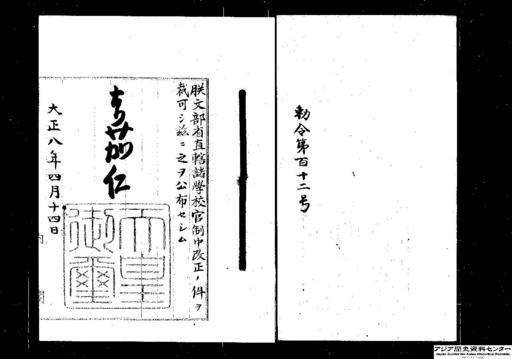 勅令第百十二号
朕文部省直轄諸學校官制中改正ノ件ヲ
裁可シ茲ニ之ヲ公布セシム
嘉仁
天皇御璽
大正八年四月十四日
アジア歴史資料センター
Japan Center for Asian Historical Records